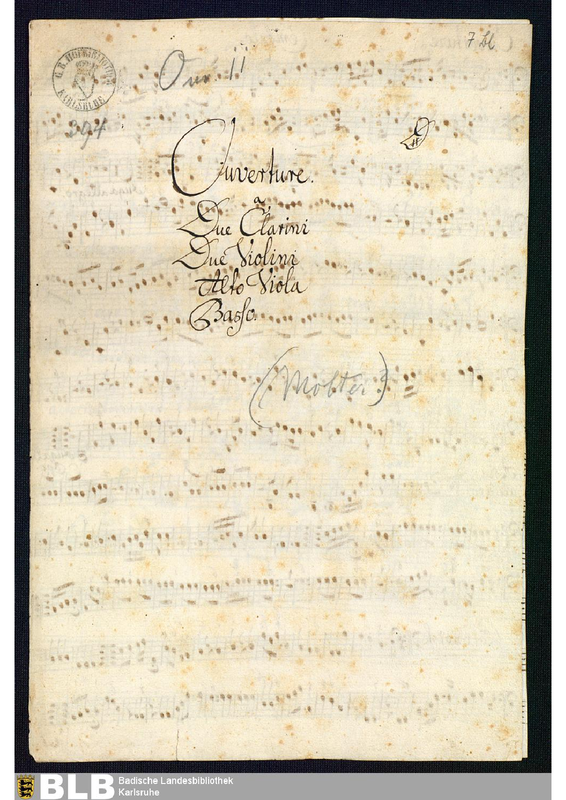 7 bl
G. B. HOFBIBLIOTHEK
KARLSRUHE
Ouv 11
394
D#
Ouverture.
a,
Due Clarini
Due Violini
Alto Viola
Basso.
(Molter)
BLB Badische Landesbibliothek
Karlsruhe